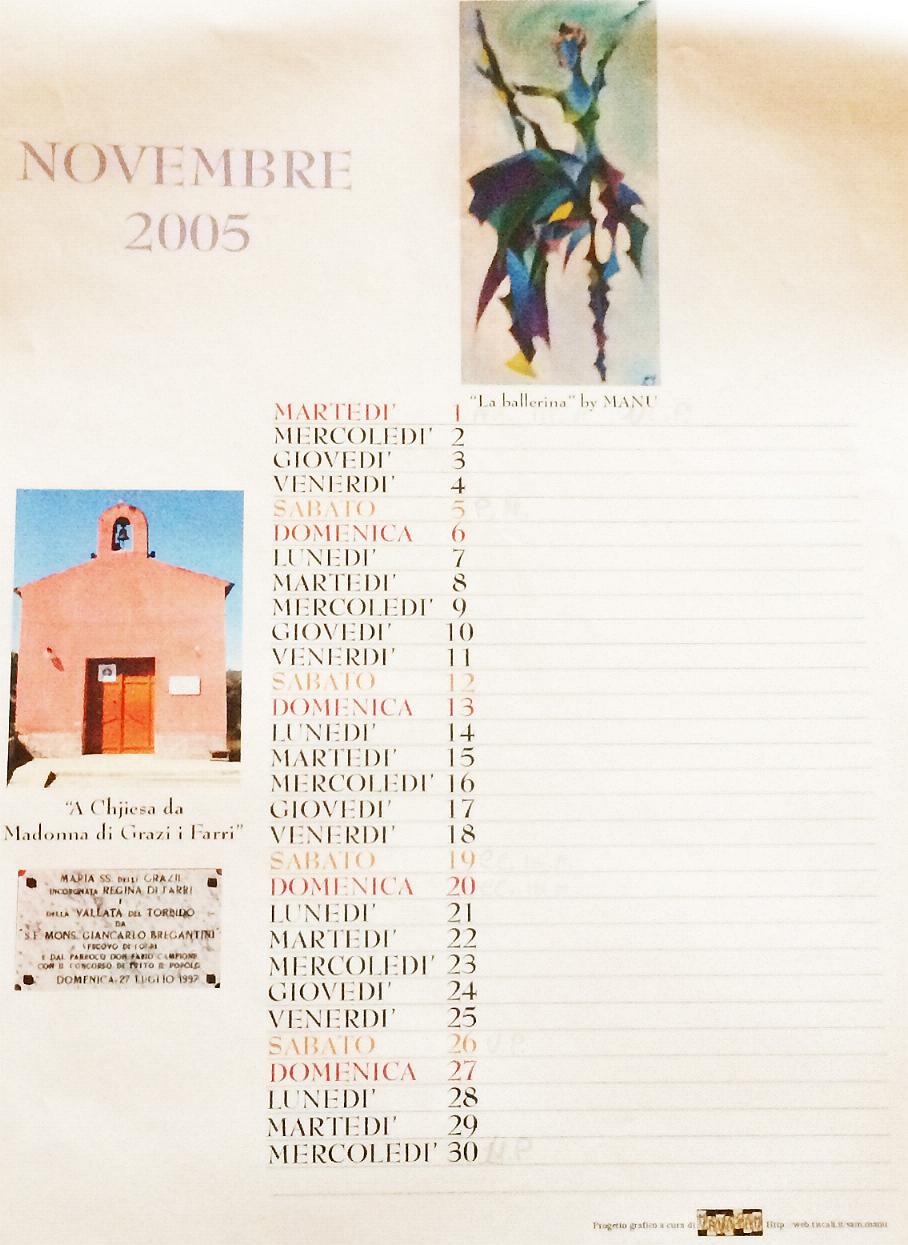 NOVEMBRE
2005
"La ballerina" by MANU
MARTEDI' 1
MERCOLEDI' 2
GIOVEDI' 3
VENERDI' 4
SABATO 5
DOMENICA 6
LUNEDI' 7
MARTEDI' 8
MERCOLEDI' 9
GIOVEDI' 10
VENERDI' 11
SABATO 12
DOMENICA 13
LUNEDI' 14
MARTEDI' 15
MERCOLEDI' 16
GIOVEDI' 17
VENERDI' 18
SABATO 19
DOMENICA 20
LUNEDI' 21
MARTEDI' 22
MERCOLEDI' 23
GIOVEDI' 24
VENERDI' 25
SABATO 26
DOMENICA 27
LUNEDI' 28
MARTEDI' 29
MERCOLEDI' 30
"A Chjiesa da
Madonna di Grazi i Farri"
MARIA SS. DELLE GRAZIE
INCORONATA REGINA DI FARRI
E
DELLA VALLATA DEL TORBIDO
DA
S.E. MONS. GIANCARLO BREGANTINI
VESCOVO DI LOCRI
E DAL PARROCO DON FABIO CAMPIONE
CON IL CONCORSO DI TUTTO IL POPOLO
DOMENICA 27 LUGLIO 1997
Progetto grafico a cura di
Http web.tiscali.it/sam.manu